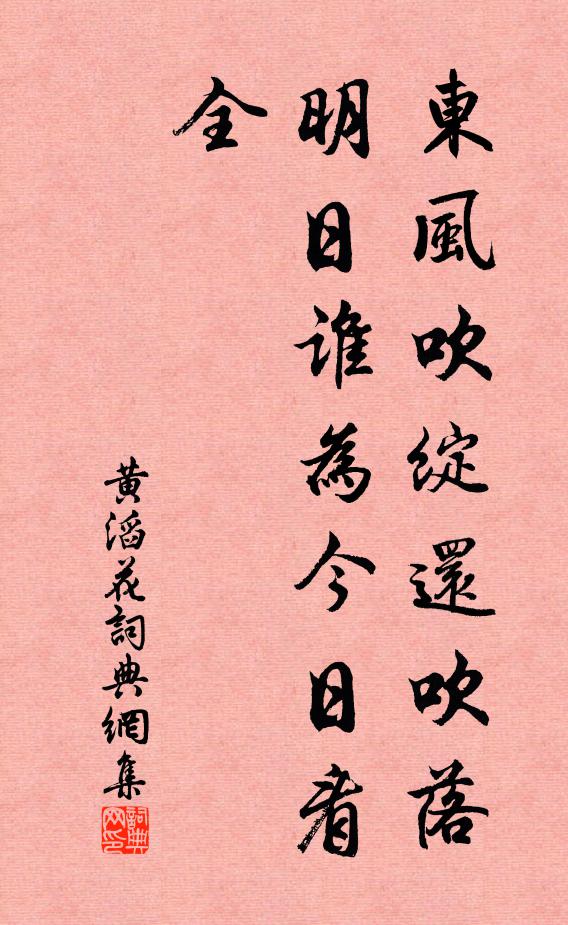 東風吹綻還吹落
明日誰為今日看
全
黃滔花詞典網集
詞典
网印